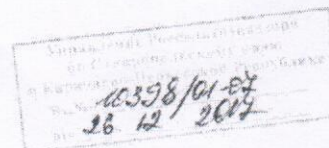 Управление Россельхознадзора
по Ставропольскому краю
и Карачаево-Черкесской Республике
10398/01-07
26 12 2017